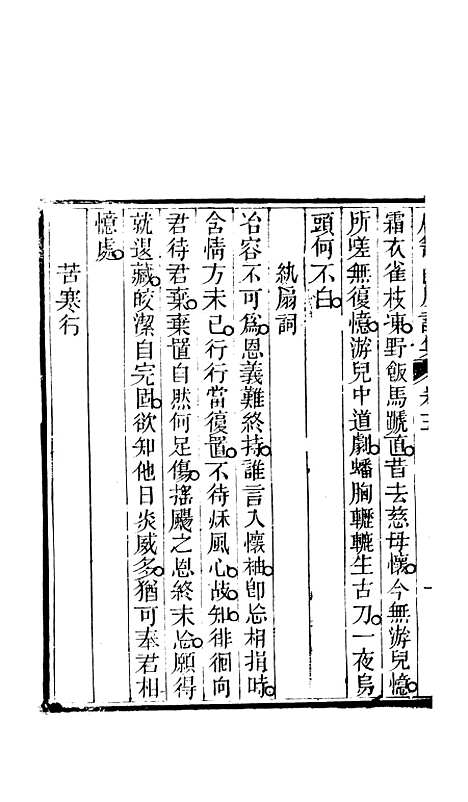 霜衣雀枝凍。野飯馬蹏直。昔去慈母懷。今無游兒憶。
所嗟無復憶。游兒中道劇。蟠胸轣轆生古刀。一夜烏
頭何不白。
紈扇詞
冶容不可爲。恩義難終持。誰言入懷袖。卽是相捐時。
含情方未已。行行當復置。不待秌風心。故知徘徊向
君待君棄。棄置自然何足傷。搖颺之恩終未忘。願得
就退藏。皎潔自完固。欲知他日炎威多。猶可奉君相
憶處。
苦寒行